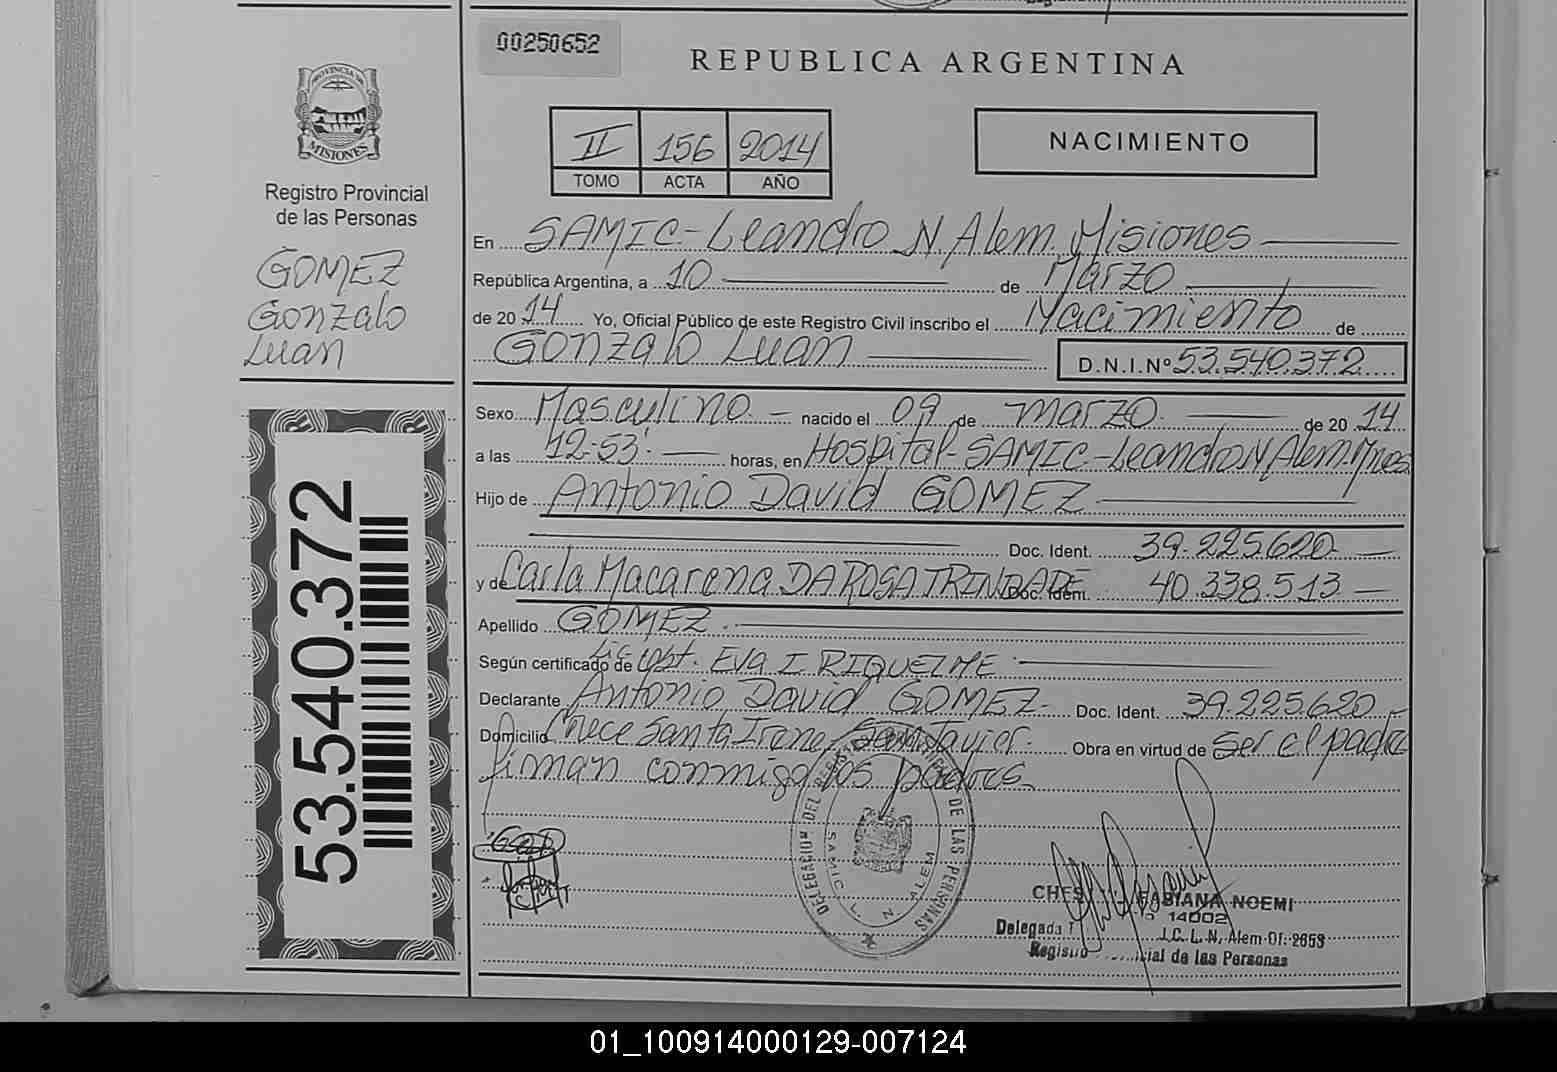 00250652
REPUBLICA ARGENTINA
PROVINCIA DE MISIONES
Registro Provincial
de las Personas
GOMEZ
Gonzalo
Luan
II 156 2014
TOMO ACTA AÑO
NACIMIENTO
En SAMIC-Leandro N. Alem. Misiones
República Argentina, a 10 de Marzo
de 20 14 Yo, Oficial Público de este Registro Civil inscribo el Nacimiento de
Gonzalo Luan D.N.I.Nº 53.540.372
Sexo Masculino nacido el 09 de marzo de 20 14
a las 12-53' horas, en Hospital-SAMIC-Leandro N Alem. Mnes
Hijo de Antonio David GOMEZ
Doc. Ident. 39.225.620
y de Carla Macarena DA ROSA TRINDADE Doc. Ident. 40.338.513
Apellido GOMEZ
Según certificado de Lic. Obst. Eva I. RIQUELME
Declarante Antonio David GOMEZ Doc. Ident. 39.225.620
Domicilio Santa Irene, San Javier. Obra en virtud de ser el padre
firman conmigo los padres.
53.540.372
DELEGACION DEL REGISTRO DE LAS PERSONAS
SAMIC L. N. ALEM
FABIANA NOEMI
14002
Delegada J.C. L. N. Alem Of. 2653
Registro de las Personas
01_100914000129-007124